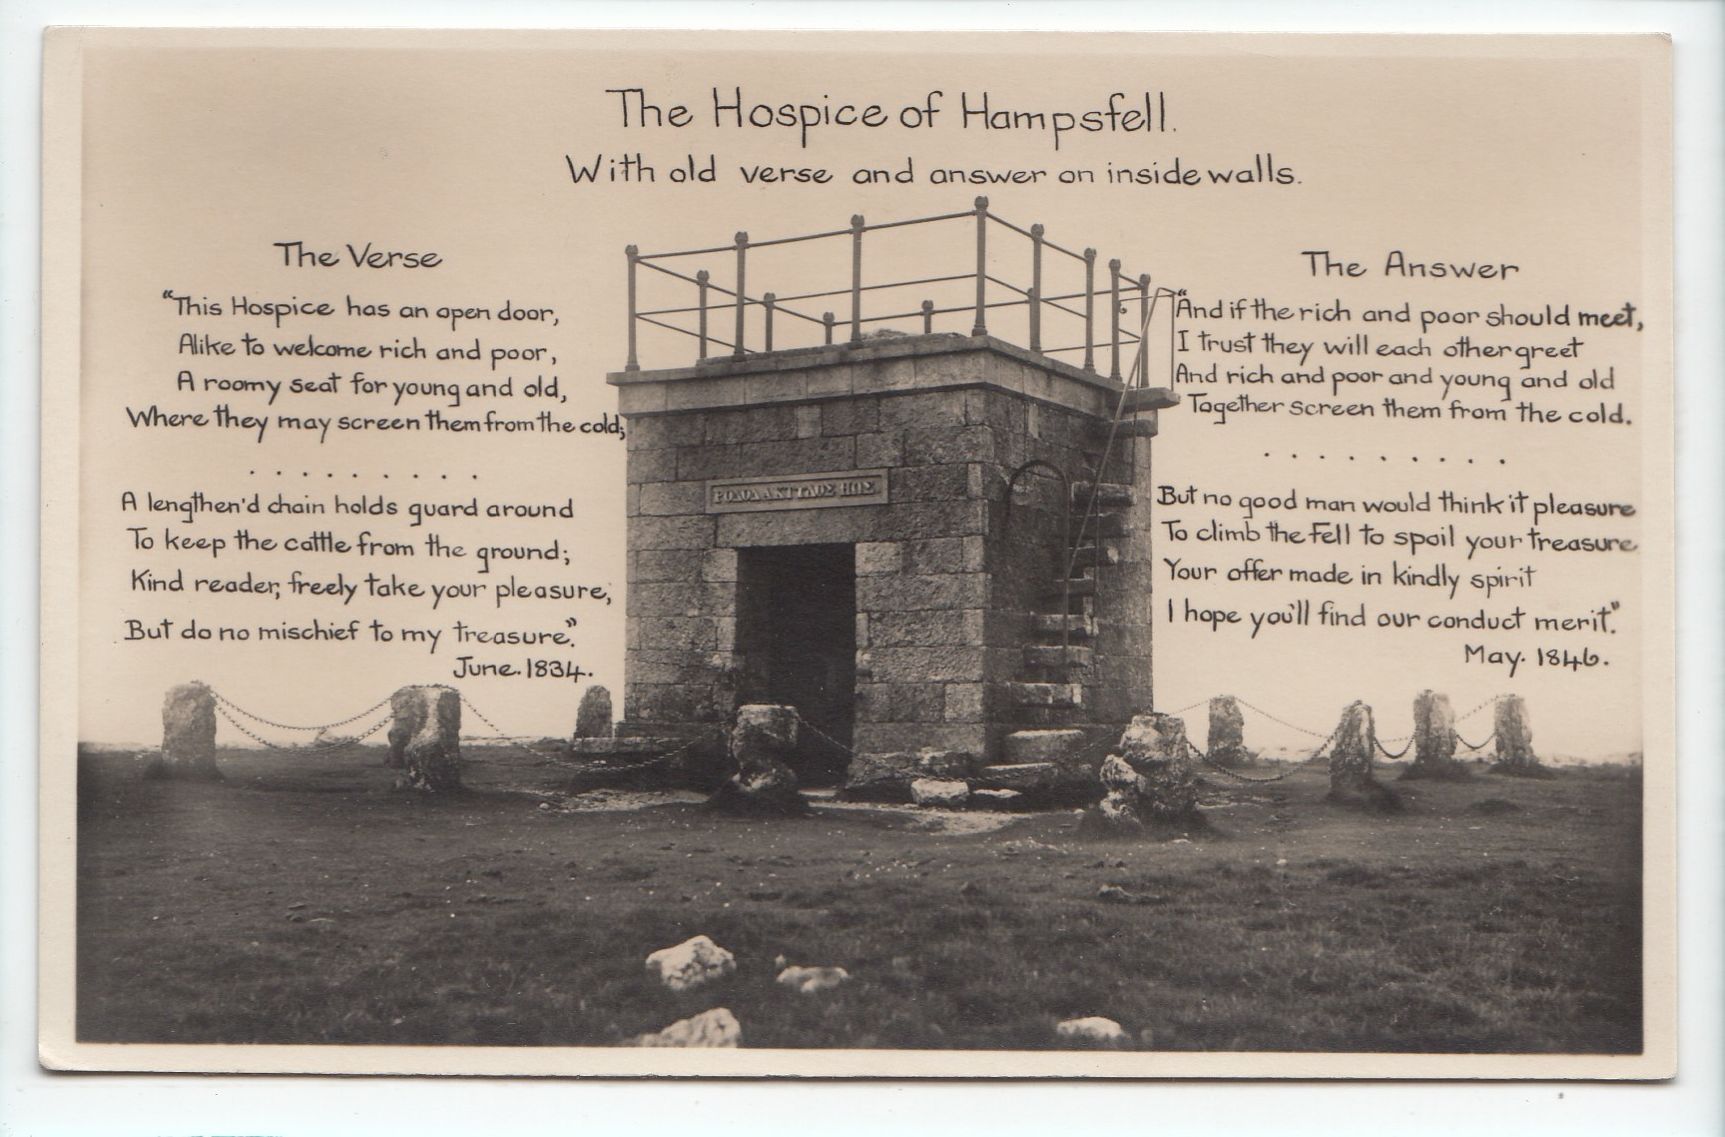 The Hospice of Hampsfell.
With old verse and answer on inside walls.
The Verse
"This Hospice has an open door,
Alike to welcome rich and poor,
A roomy seat for young and old,
Where they may screen them from the cold;
. . . . . . . . .
A lengthen'd chain holds guard around
To keep the cattle from the ground;
Kind reader, freely take your pleasure,
But do no mischief to my treasure."
June. 1834.
ΡΟΔΟΔΑΚΤΥΛΟΣ ΗΩΣ
The Answer
"And if the rich and poor should meet,
I trust they will each other greet
And rich and poor and young and old
Together screen them from the cold.
. . . . . . . . .
But no good man would think it pleasure
To climb the Fell to spoil your treasure
Your offer made in kindly spirit
I hope you'll find our conduct merit."
May. 1846.